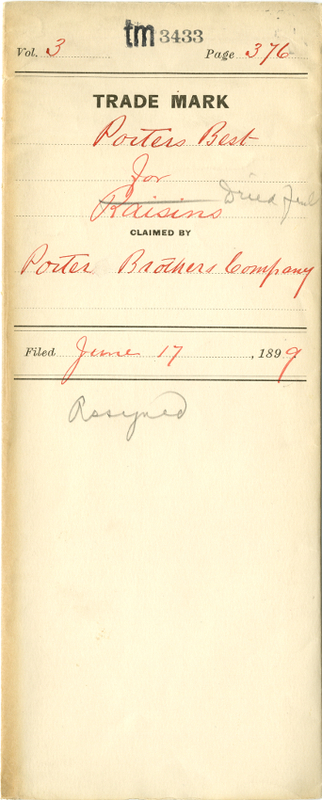 tm 3433
Vol. 3 Page 376
TRADE MARK
Porters Best
for
Raisins Dried
CLAIMED BY
Porter Brothers Company
Filed June 17, 1899